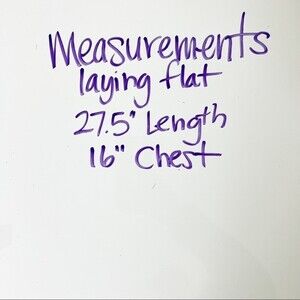 Measurements
laying flat
27.5" Length
16" Chest